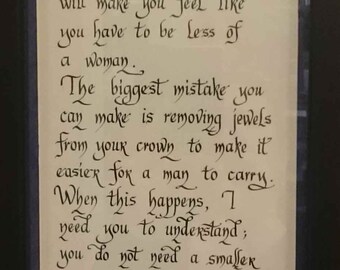 will make you feel like
you have to be less of
a woman.
The biggest mistake you
can make is removing jewels
from your crown to make it
easier for a man to carry.
When this happens, I
need you to understand;
you do not need a smaller